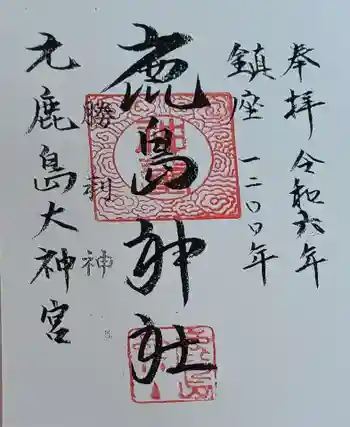 奉拝 令和六年
鎮座 一二〇〇年
鹿島神社
勝利神
元鹿島大神宮